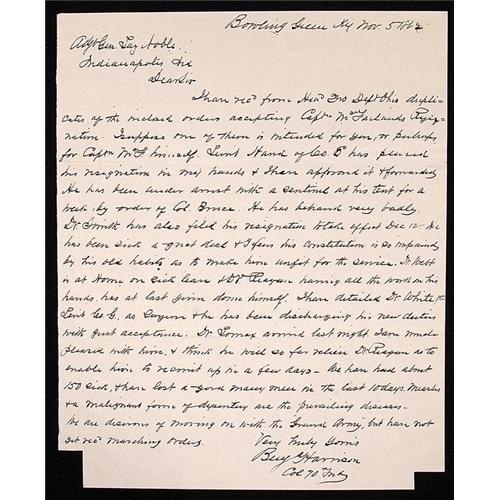 Bowling Green Ky Nov. 5 1862
Adjt Gen. Laz Noble
Indianapolis Ind
Dear Sir
I have recd from Head Qrs Dept Ohio dupli-
cates of the inclosed orders accepting Captn McFarland's Resig-
nation. I suppose one of them is intended for you, or perhaps
for Captn McF himself. Lieut Hand of Co E has placed
his resignation in my hands & I have approved it & forwarded
He has been under arrest with a sentinel at his tent for a
week by order of Col. Bruce. He has behaved very badly.
Dr. Smith has also filed his resignation to take effect Dec 12. He
has been sick a great deal & I fear his constitution is so impaired
by his old habits as to make him unfit for the service. Dr. Webt
is at Home on sick leave & Dr Reagan having all the work on his
hands, has at last given down himself. I have detailed Dr. White 1st
Lieut Co G. as Surgeon & he has been discharging his new duties
with great acceptance. Dr. Lomax arrived last night I am much
pleased with him, & think he will so far relieve Dr. Reagan as to
enable him to recruit up in a few days - We have had about
150 sick, & have lost a good many men in the last 10 days. Measles
& a malignant form of dysentery are the prevailing diseases -
We are desirous of moving on with the Grand Army, but have not
yet recd marching orders.
Very truly Yours
Benj Harrison
Col 70 Ind